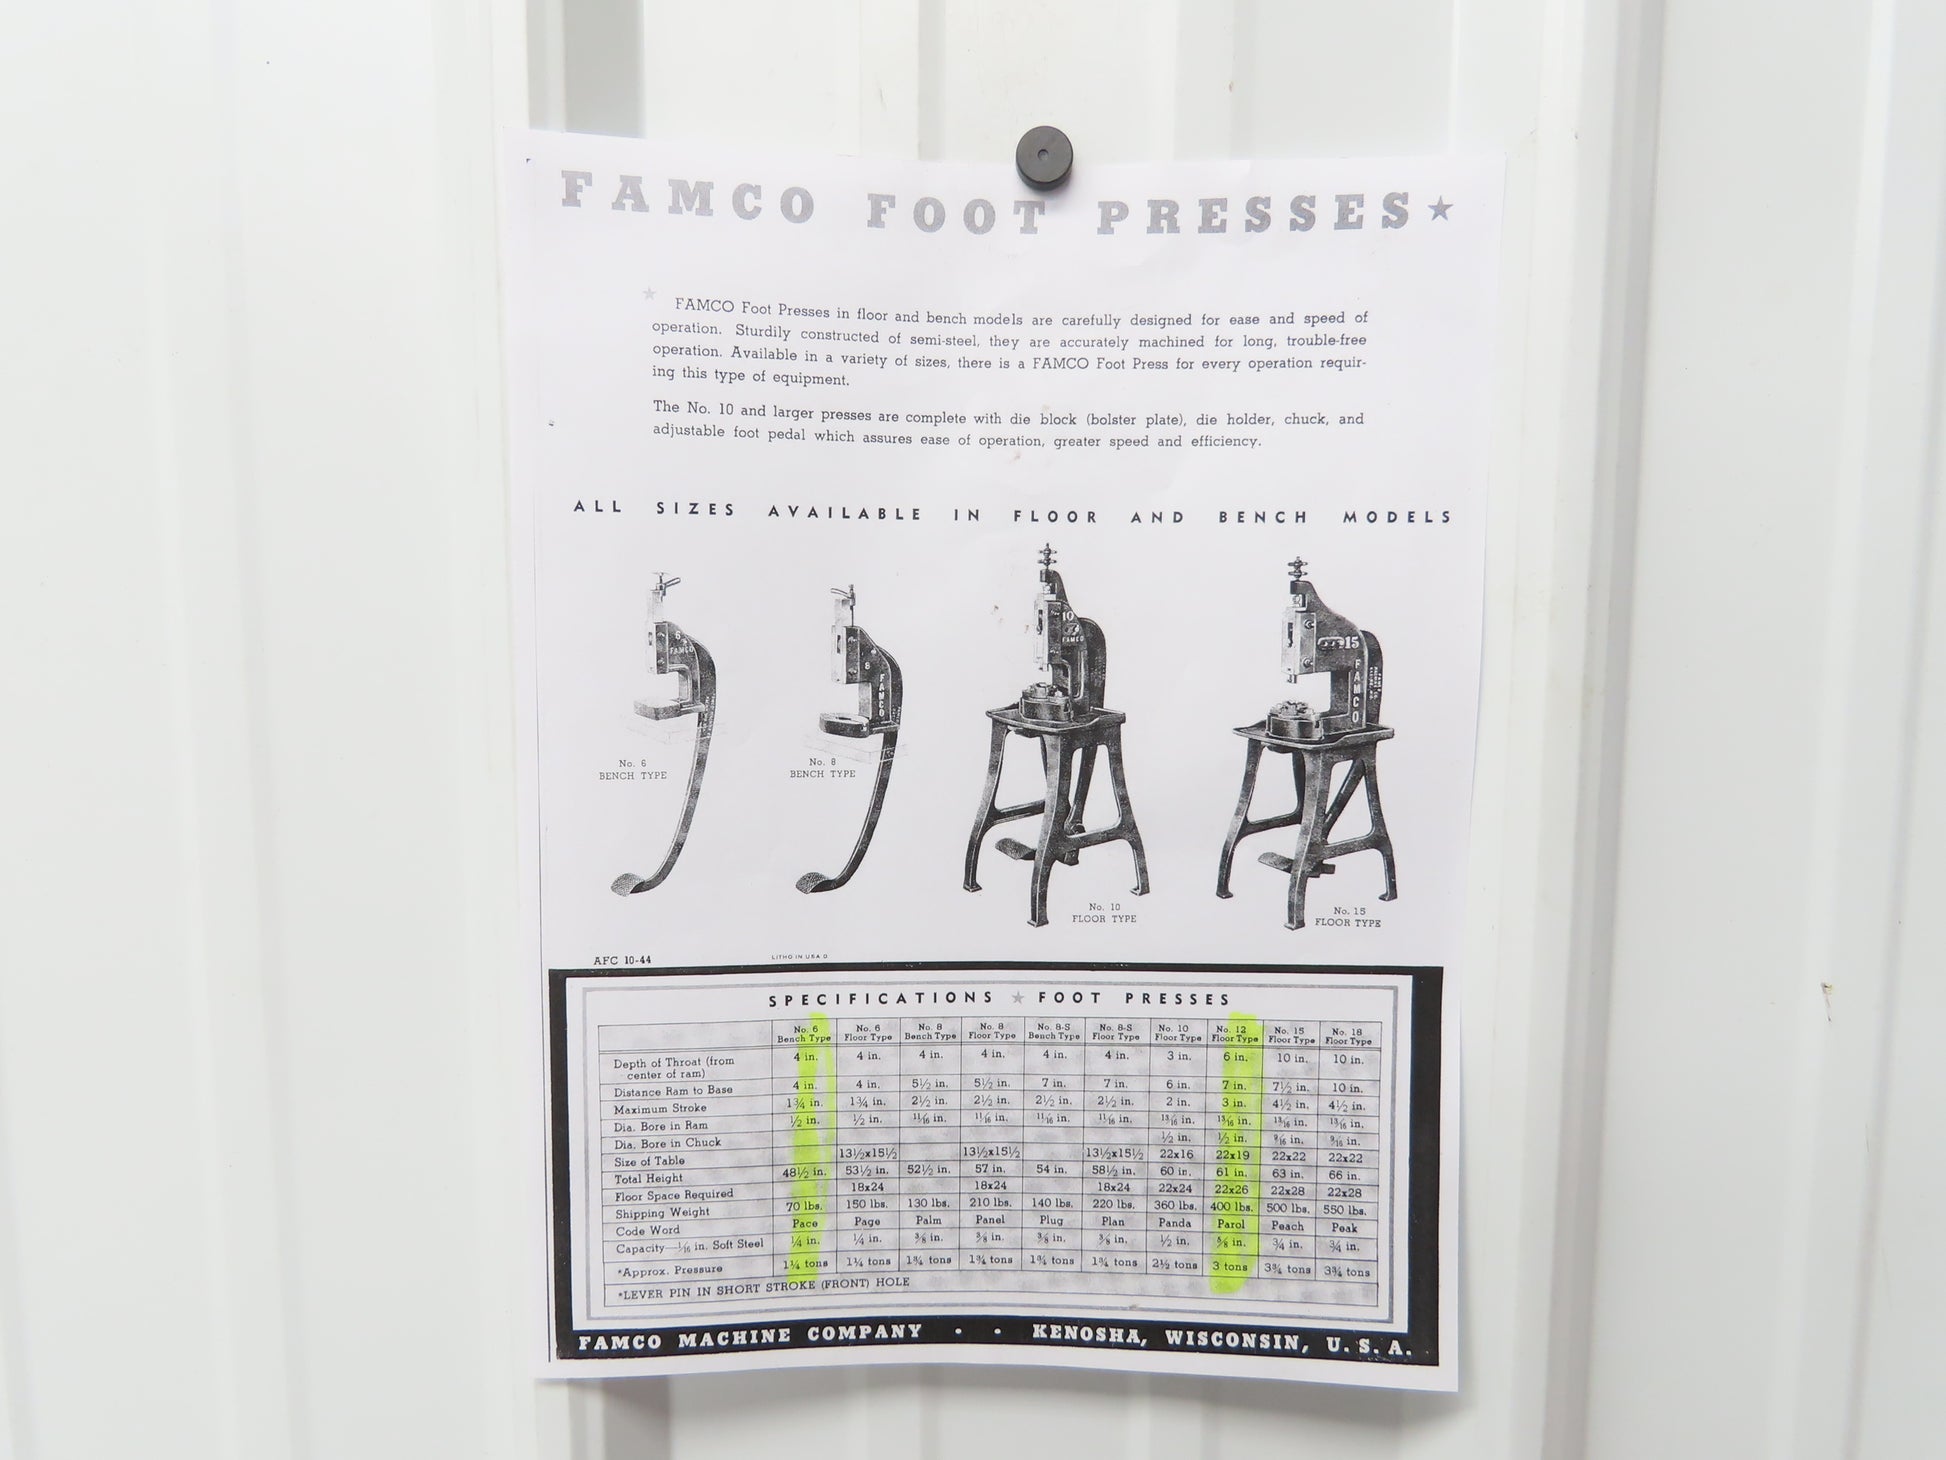 FAMCO FOOT PRESSES★
★ FAMCO Foot Presses in floor and bench models are carefully designed for ease and speed of
operation. Sturdily constructed of semi-steel, they are accurately machined for long, trouble-free
operation. Available in a variety of sizes, there is a FAMCO Foot Press for every operation requir-
ing this type of equipment.
The No. 10 and larger presses are complete with die block (bolster plate), die holder, chuck, and
adjustable foot pedal which assures ease of operation, greater speed and efficiency.
ALL SIZES AVAILABLE IN FLOOR AND BENCH MODELS
6
FAMCO
8
FAMCO
10
FAMCO
15
FAMCO
No. 6
BENCH TYPE
No. 8
BENCH TYPE
No. 10
FLOOR TYPE
No. 15
FLOOR TYPE
AFC 10-44
LITHO IN USA
SPECIFICATIONS ★ FOOT PRESSES
No. 6 Bench Type No. 6 Floor Type No. 8 Bench Type No. 8 Floor Type No. 8-S Bench Type No. 8-S Floor Type No. 10 Floor Type No. 12 Floor Type No. 15 Floor Type No. 18 Floor Type
Depth of Throat (from center of ram) 4 in. 4 in. 4 in. 4 in. 4 in. 4 in. 3 in. 6 in. 10 in. 10 in.
Distance Ram to Base 4 in. 4 in. 5½ in. 5½ in. 7 in. 7 in. 6 in. 7 in. 7½ in. 10 in.
Maximum Stroke 1¾ in. 1¾ in. 2½ in. 2½ in. 2½ in. 2½ in. 2 in. 3 in. 4½ in. 4½ in.
Dia. Bore in Ram ½ in. ½ in. 11/16 in. 11/16 in. 11/16 in. 11/16 in. 13/16 in. 13/16 in. 13/16 in. 13/16 in.
Dia. Bore in Chuck ½ in. ½ in. 9/16 in. 9/16 in.
Size of Table 13½x15½ 13½x15½ 13½x15½ 22x16 22x19 22x22 22x22
Total Height 48½ in. 53½ in. 52½ in. 57 in. 54 in. 58½ in. 60 in. 61 in. 63 in. 66 in.
Floor Space Required 18x24 18x24 18x24 22x24 22x26 22x28 22x28
Shipping Weight 70 lbs. 150 lbs. 130 lbs. 210 lbs. 140 lbs. 220 lbs. 360 lbs. 400 lbs. 500 lbs. 550 lbs.
Code Word Pace Page Palm Panel Plug Plan Panda Parol Peach Peak
Capacity—1/16 in. Soft Steel ¼ in. ¼ in. ⅜ in. ⅜ in. ⅜ in. ⅜ in. ½ in. ⅝ in. ¾ in. ¾ in.
*Approx. Pressure 1¼ tons 1¼ tons 1¾ tons 1¾ tons 1¾ tons 1¾ tons 2½ tons 3 tons 3¾ tons 3¾ tons
*LEVER PIN IN SHORT STROKE (FRONT) HOLE
FAMCO MACHINE COMPANY • • KENOSHA, WISCONSIN, U. S. A.